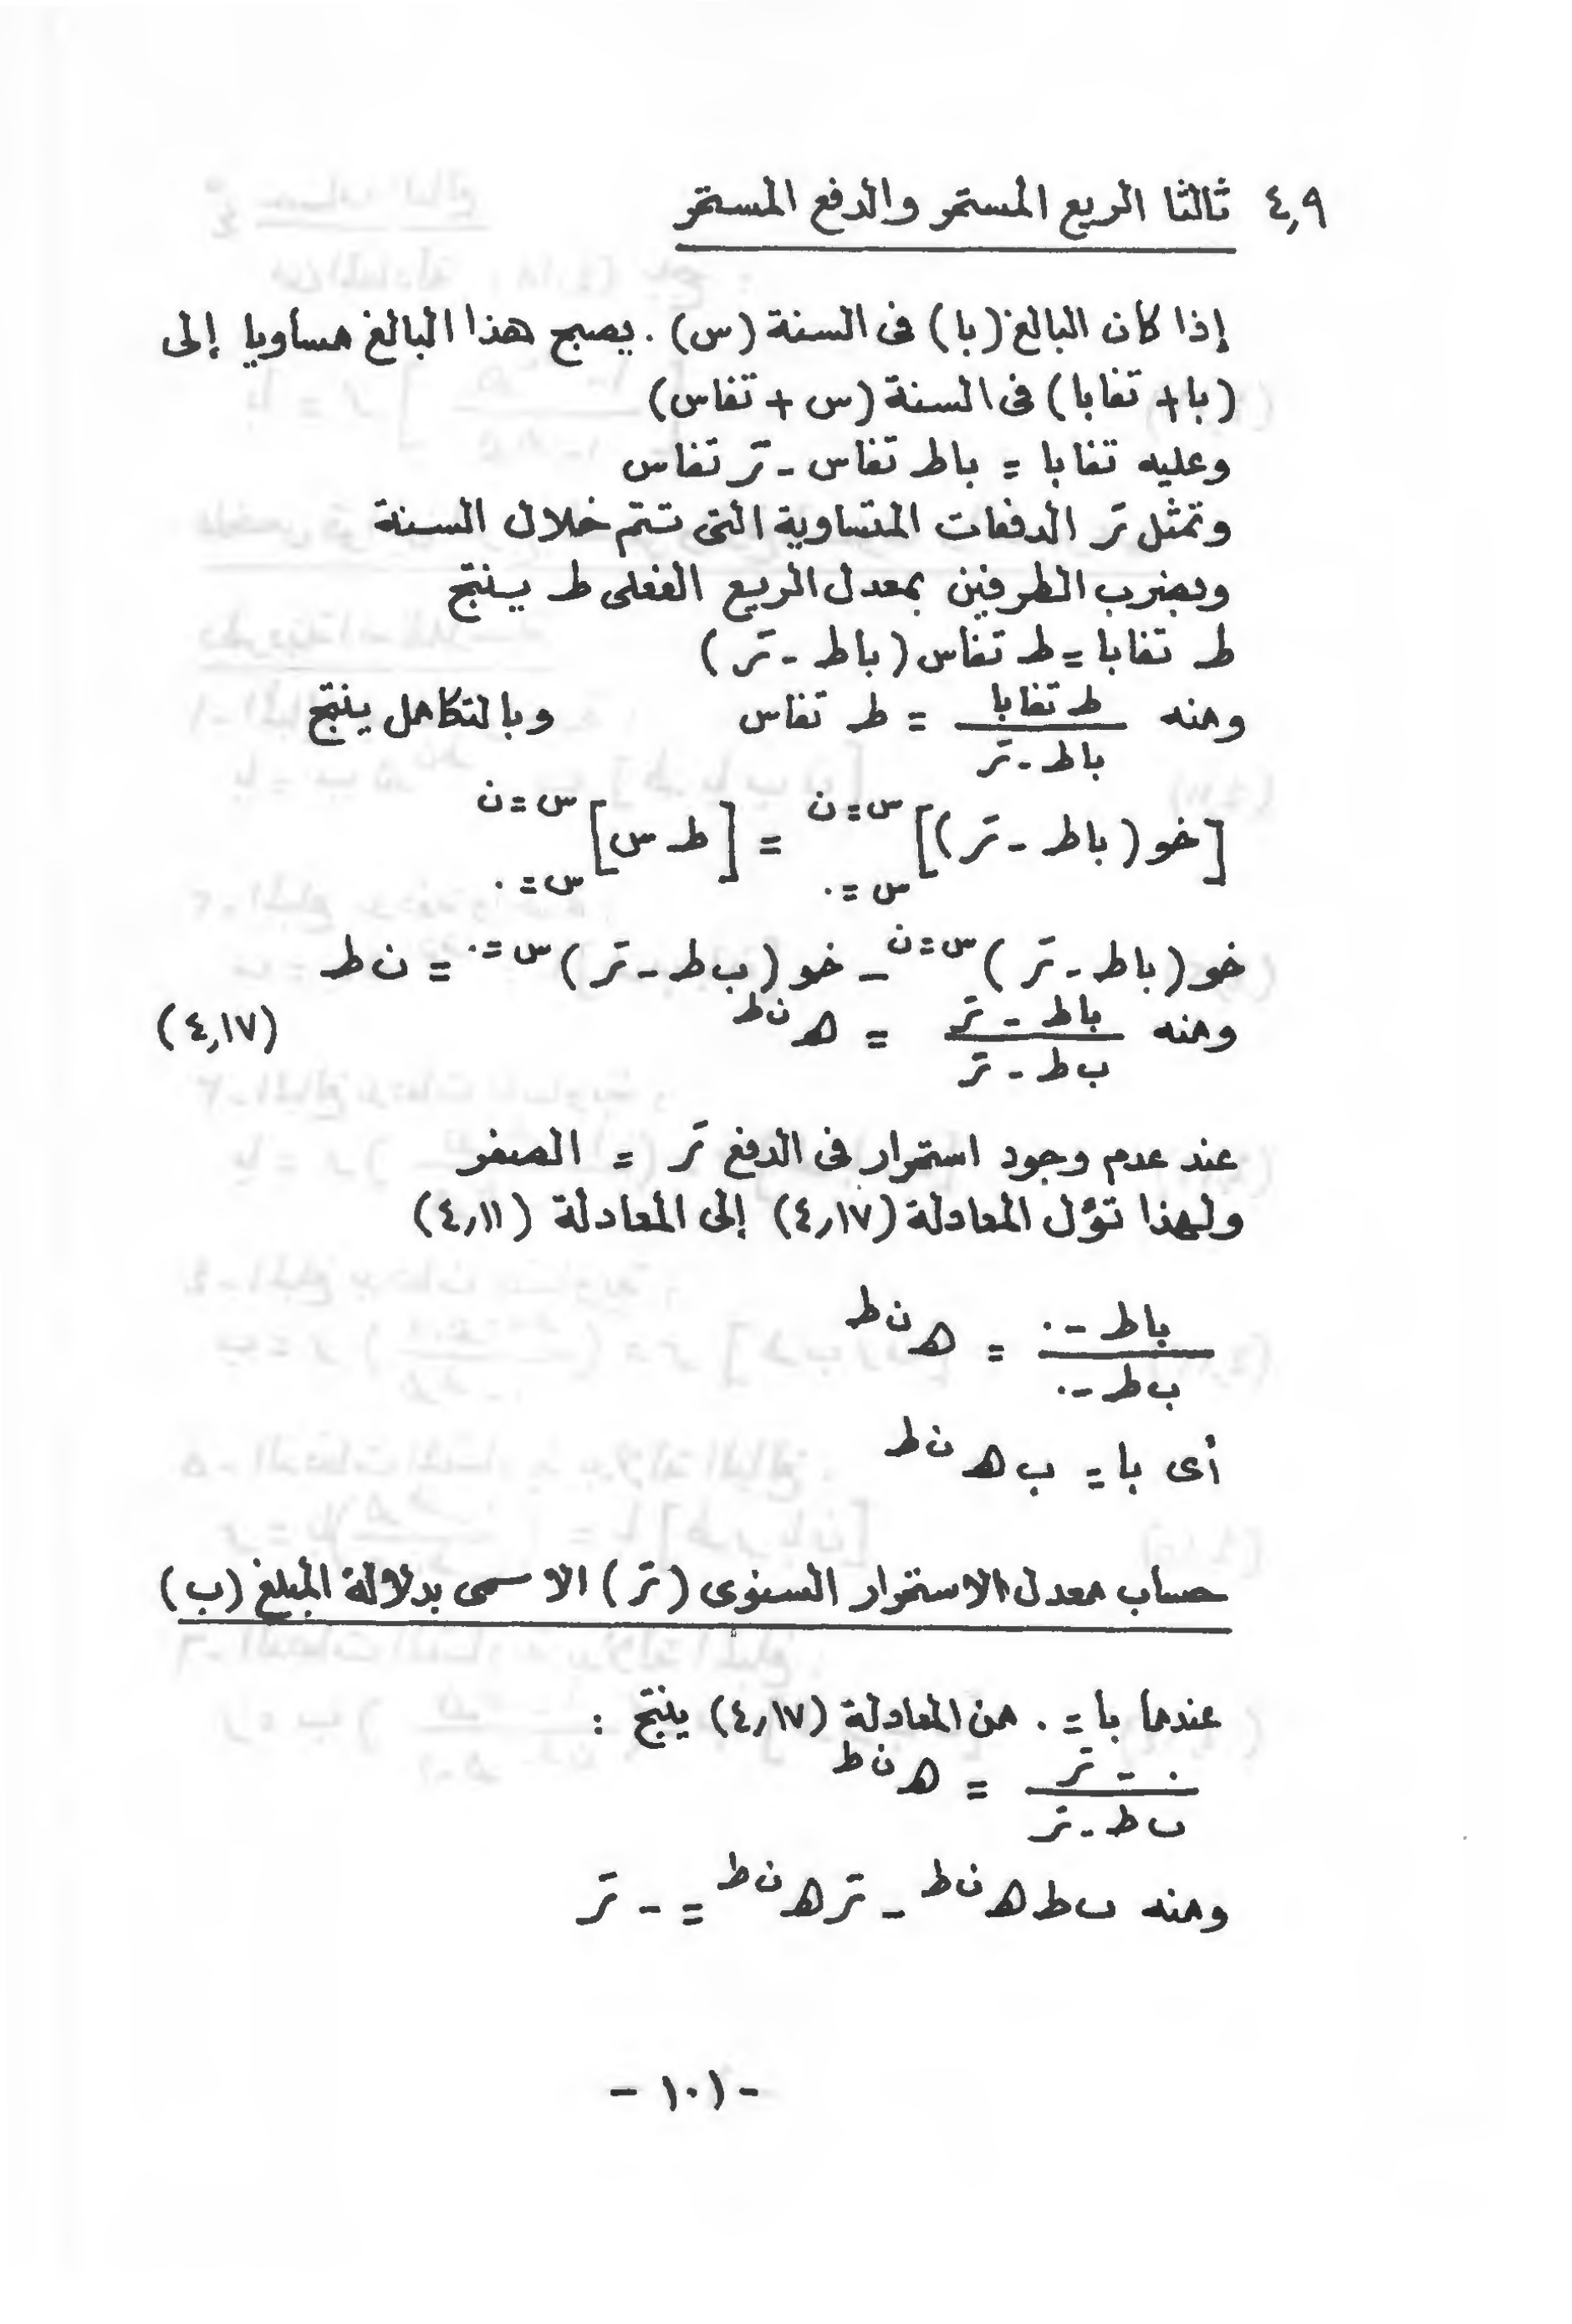 ٤,٩ ثالثا الريع المستمر والدفع المستمر
إذا كان البالغ (با) فى السنة (س) . يصبح هذا البالغ مساويا إلى
(با + تفابا) فى السنة (س + تفاس)
وعليه تفابا = باط تفاس - تَر تفاس
وتمثل تَر الدفعات المتساوية التى تتم خلال السنة
وبضرب الطرفين بمعدل الريع الفعلى ط ينتج
ط تفابا = ط تفاس (باط - تَر)
ومنه ط تفابا / باط - تَر = ط تفاس وبالتكامل ينتج
[خو (باط - تَر)] س=ن س=٠ = [ط س] س=ن س=٠
خو (باط - تَر) س=ن - خو (ب ط - تَر) س=٠ = ن ط
ومنه باط - تَر / ب ط - تَر = هـ ن ط (٤,١٧)
عند عدم وجود استمرار فى الدفع تَر = الصفر
ولهذا تؤل المعادلة (٤,١٧) إلى المعادلة (٤,١١)
باط - ٠ / ب ط - ٠ = هـ ن ط
أى با = ب هـ ن ط
حساب معدل الاستمرار السنوى (تَر) الاسمى بدلالة المبلغ (ب)
عندما با = ٠ من المعادلة (٤,١٧) ينتج :
٠ - تَر / ب ط - تَر = هـ ن ط
ومنه ب ط هـ ن ط - تَر هـ ن ط = - تَر
- ١٠١ -